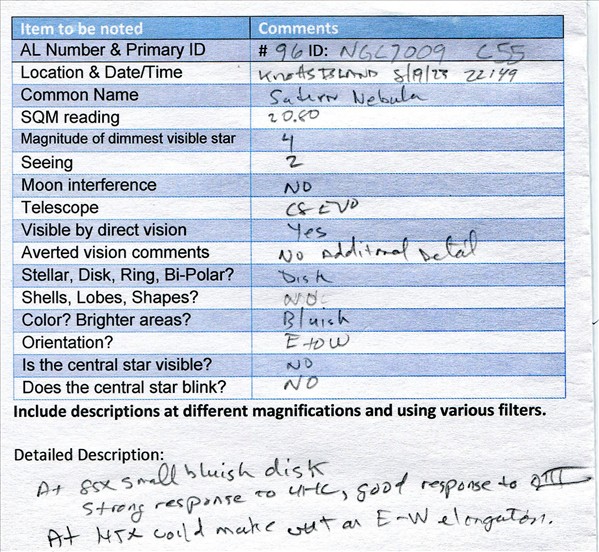 Item to be noted Comments
AL Number & Primary ID # 96 ID: NGC7009 C55
Location & Date/Time Knotts ISLAND 8/9/23 22:49
Common Name Saturn Nebula
SQM reading 20.80
Magnitude of dimmest visible star 4
Seeing 2
Moon interference NO
Telescope C8 EVO
Visible by direct vision Yes
Averted vision comments No Additional Detail
Stellar, Disk, Ring, Bi-Polar? Disk
Shells, Lobes, Shapes? NO
Color? Brighter areas? Bluish
Orientation? E to W
Is the central star visible? NO
Does the central star blink? NO
Include descriptions at different magnifications and using various filters.
Detailed Description:
At 85x small bluish disk
Strong response to UHC, good response to OIII
At could make out an E-W elongation.